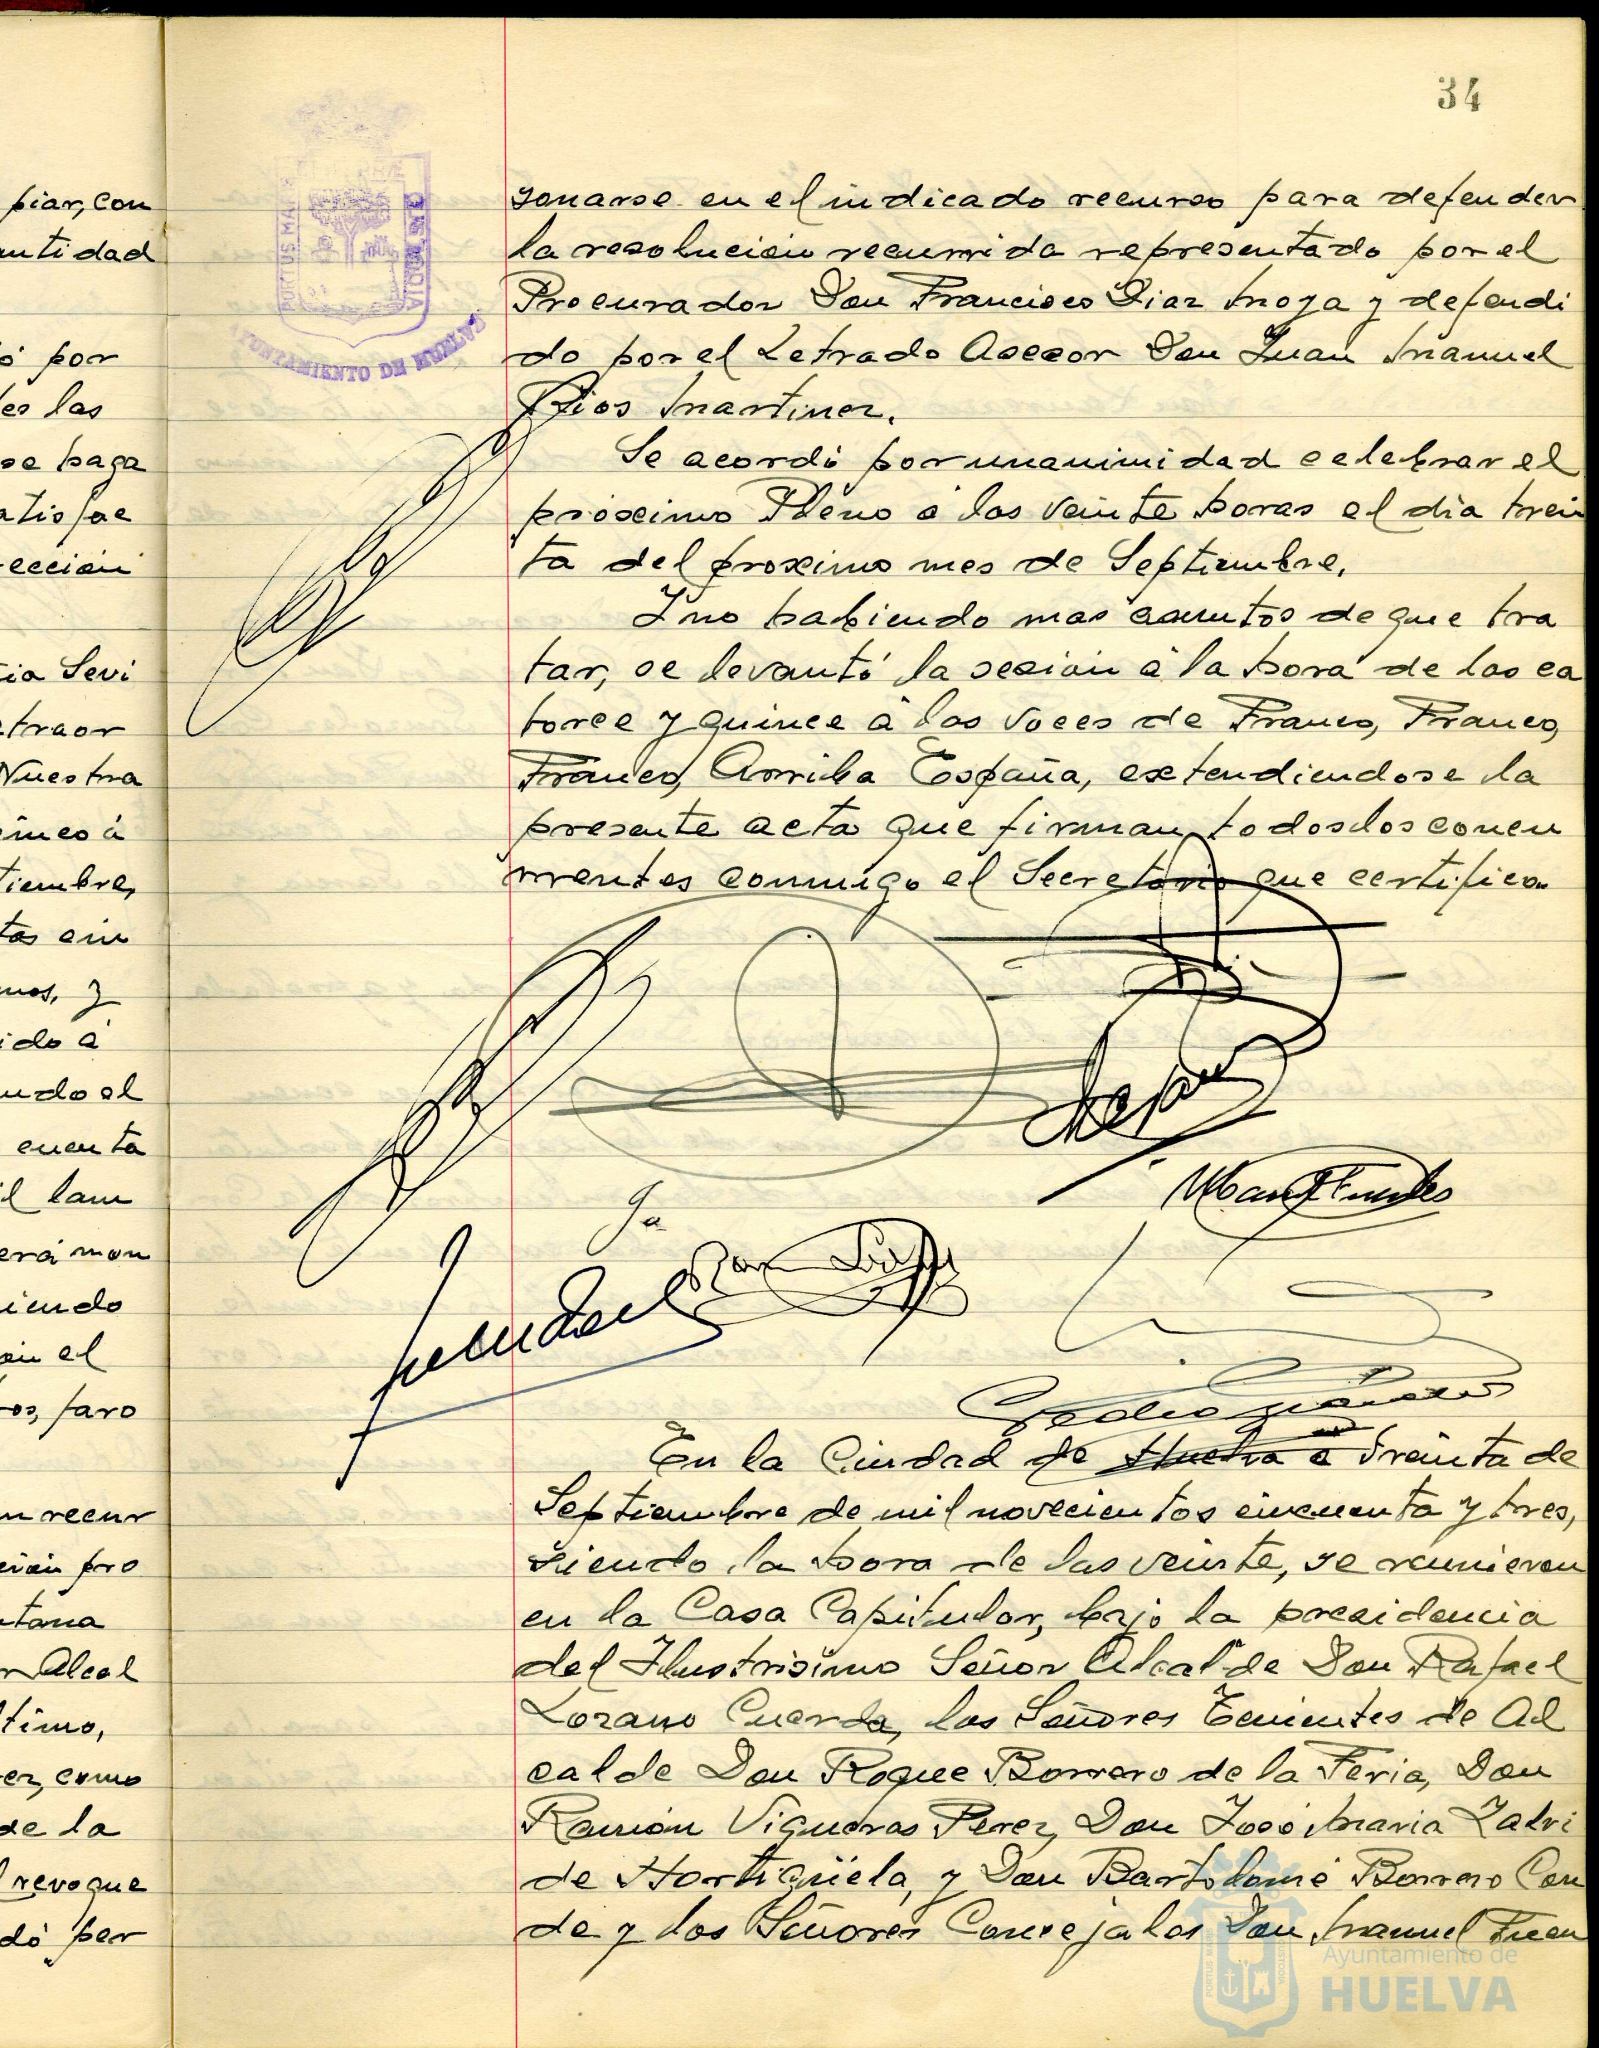 34
piar, con
antidad
ó por
es las
se haga
atisfac
ección
cia Sevi
traor
Nuestra
tiembre,
mos, y
ido á
ndo el
cuenta
il lam
será mon
iendo
en el
ros, faro
un recur
ción pro
ntana
r Alcal
ltimo,
ez, como
de la
l revoque
dó per
PORTUS MARIS
CUSTODIA
AYUNTAMIENTO DE HUELVA
sonarse en el indicado recurso para defender
la resolución recurrida representado por el
Procurador Don Francisco Diaz Moya y defendi
do por el Letrado Asesor Don Juan Manuel
Rios Martinez.
Se acordó por unanimidad celebrar el
próximo Pleno á las veinte horas el día trein
ta del proximo mes de Septiembre.
Y no habiendo mas asuntos de que tra
tar, se levantó la sesión á la hora de las ca
torce y quince á las voces de Franco, Franco,
Franco, Arriba España, extendiendose la
presente acta que firman todos los concu
rrentes conmigo el Secretario que certifico.
Man Fuentes
Pedro
En la Ciudad de Huelva a treinta de
Septiembre de mil novecientos cincuenta y tres,
siendo la hora de las veinte, se reunieron
en la Casa Capitular, bajo la presidencia
del Ilustrisimo Señor Alcalde Don Rafael
Lozano Cuerda, los Señores Tenientes de Al
calde Don Roque Borrero de la Feria, Don
Ramón Vigueras Perez, Don José Maria Zalvi
de Hortigüela, y Don Bartolomé Borrero Con
de y los Señores Concejales Don Manuel Fuen
Ayuntamiento de
HUELVA